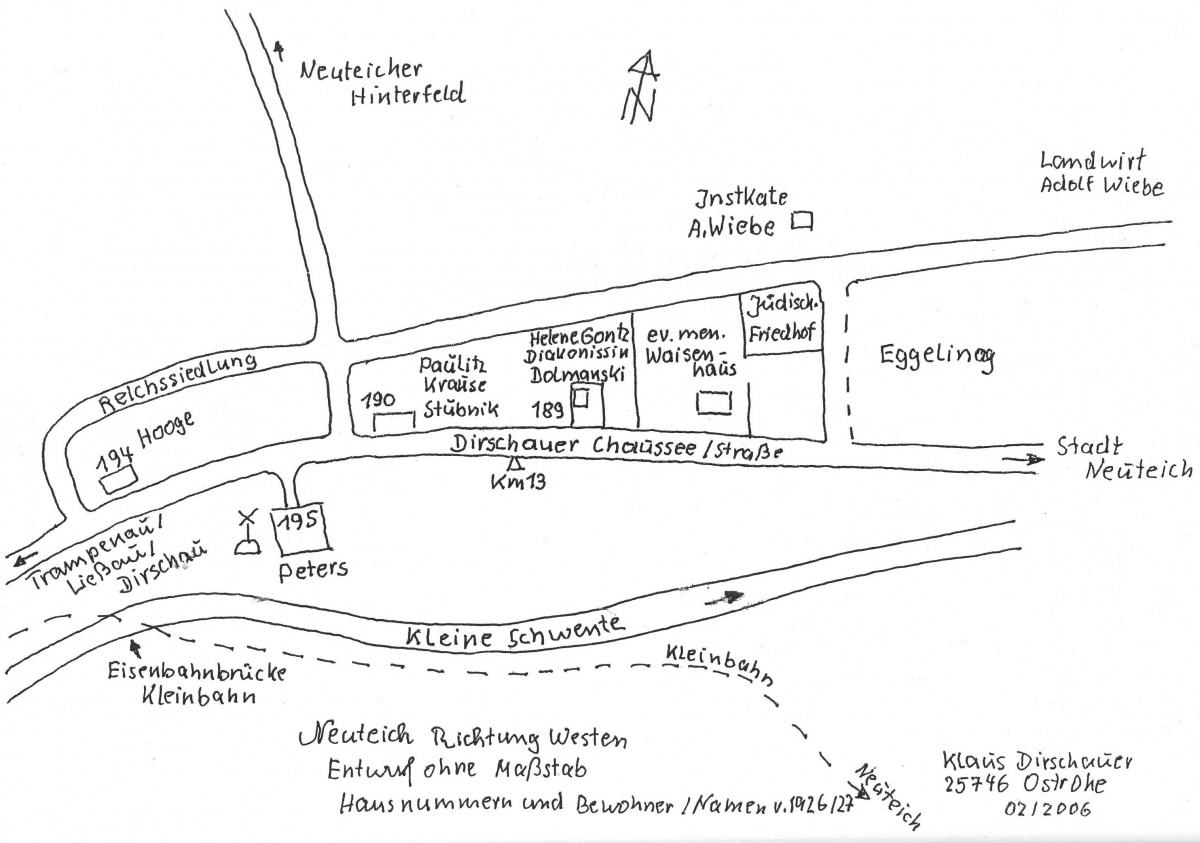 Neuteicher
Hinterfeld
N
Landwirt
Adolf Wiebe
Instkate
A. Wiebe
Jüdisch.
Friedhof
Helene Gontz
Diakonissin
Dolmanski
189
ev. men.
Waisen-
haus
Eggelinog
Reichssiedlung
Paulitz
Krause
Stübnik
190
Hooge
194
Dirschauer Chaussee/Straße
Km 13
Stadt
Neuteich
195
Peters
Trampenau/
Ließau/
Dirschau
Kleine Schwente
Kleinbahn
Eisenbahnbrücke
Kleinbahn
Neuteich Richtung Westen
Entwurf ohne Maßstab
Hausnummern und Bewohner/Namen v. 1926/27
Neuteich
Klaus Dirschauer
25746 Ostrohe
02/2006